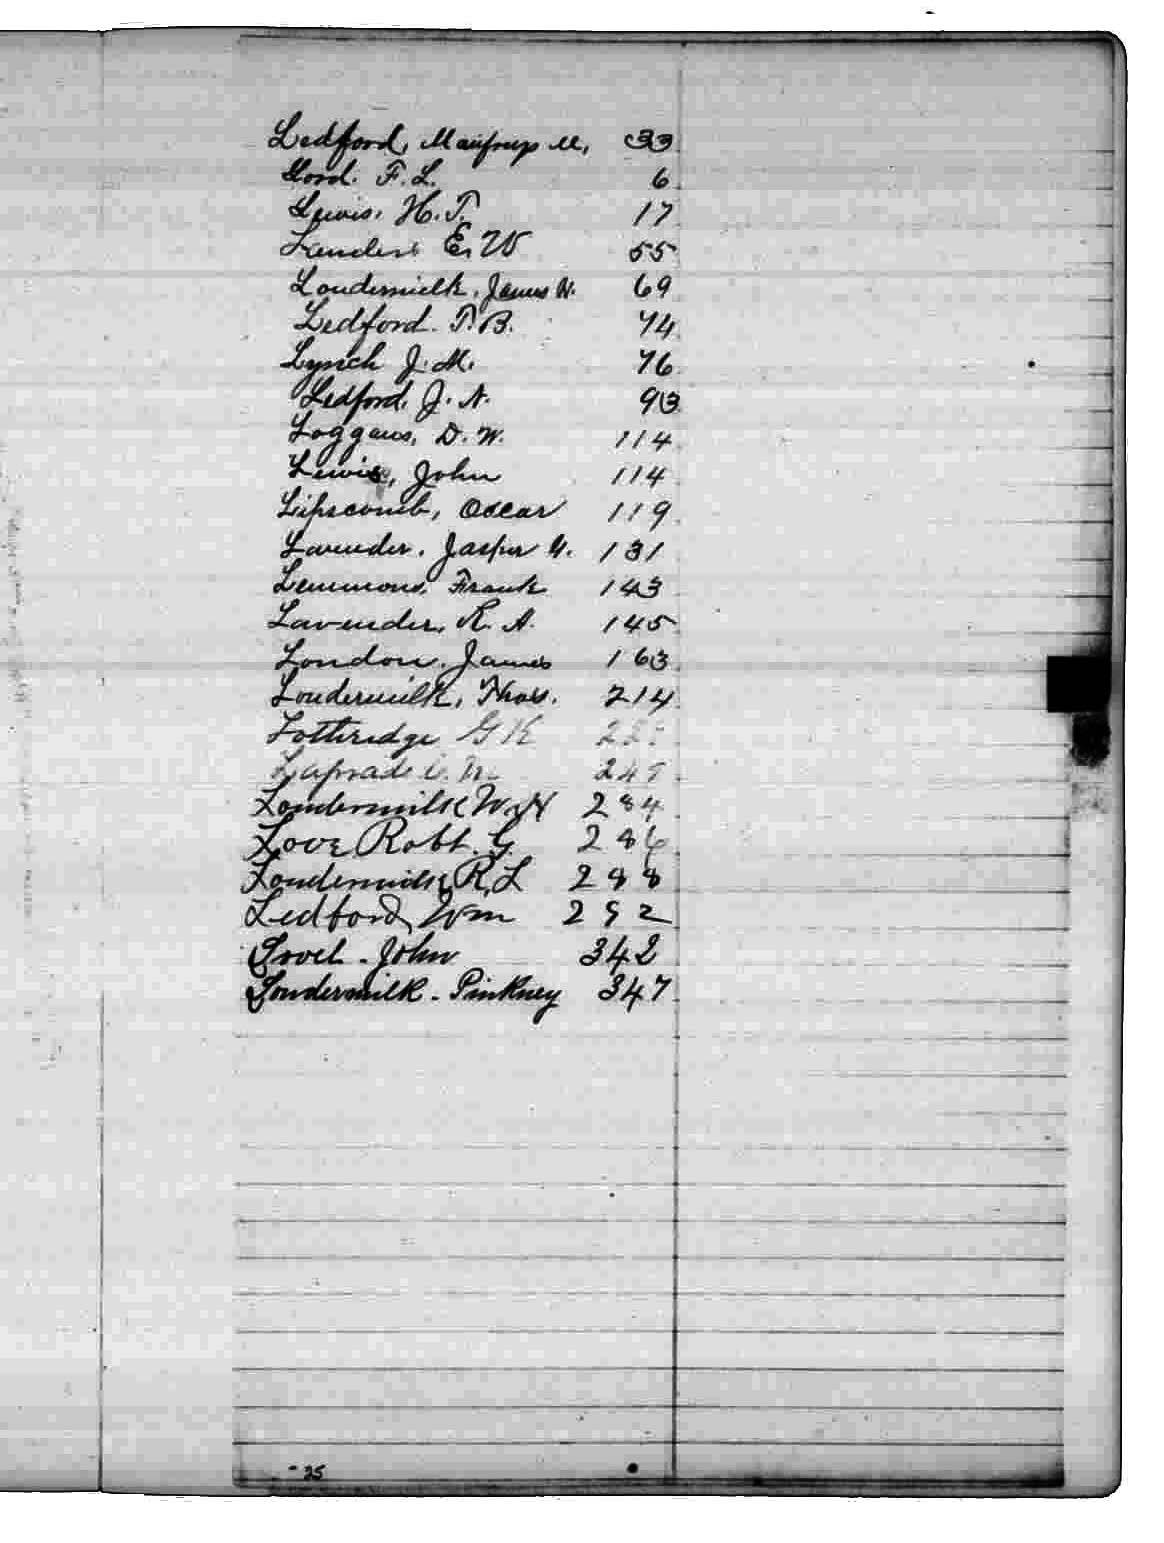 Ledford, M 33
Lord. F. L. 6
Lewis. H. T. 17
E. W 55
Loudermilk, James W. 69
Ledford. T. B. 74
Lynch J. M. 76
Ledford, J. A. 93
Loggans, D. W. 114
Lewis, John 114
Lipscomb, Oscar 119
Lavender. Jasper 131
Lemmons, Frank 143
Lavender, R. A. 145
London. James 163
Loudermilk, Thos. 214
Lotheridge G K
Laprade
Loudermilk W. H 284
Love Robt. G 286
Loudermilk, R, L 288
Ledford, Wm 292
John 342
Loudermilk - Pinkney 347
35